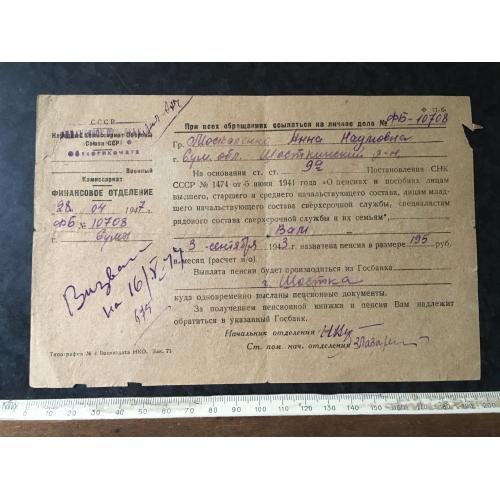 Ф. 11-б
При всех обращениях ссылаться на личное дело № ФБ-10708
СССР
Народный Комиссариат Обороны
Союза ССР
Военный
Комиссариат
ФИНАНСОВОЕ ОТДЕЛЕНИЕ
28 04 1947 г.
ФБ № 10708
г. Сумы
Гр. Москаленко Анна Наумовна
г. Сум. обл. Шосткинский р-н
На основании ст. ст. 9а Постановления СНК
СССР № 1474 от 5 июня 1941 года «О пенсиях и пособиях лицам
высшего, старшего и среднего начальствующего состава, лицам млад-
шего начальствующего состава сверхсрочной службы, специалистам
рядового состава сверхсрочной службы и их семьям",
Вам
с 3 сентября 1943 г. назначена пенсия в размере 195 руб.
в месяц (расчет н/о).
Выплата пенсии будет производиться из Госбанка
г. Шостка
куда одновременно высланы пенсионные документы.
За получением пенсионной книжки и пенсии Вам надлежит
обратиться в указанный Госбанк.
Начальник отделения
Ст. пом. нач. отделения
Вызван
на 16/V-47
675
Типография № 4 Воениздата НКО. Зак. 71
0 10 20 30 40 50 60 70 80 90 100 110 120 130 140 150 160 170 180 190 200